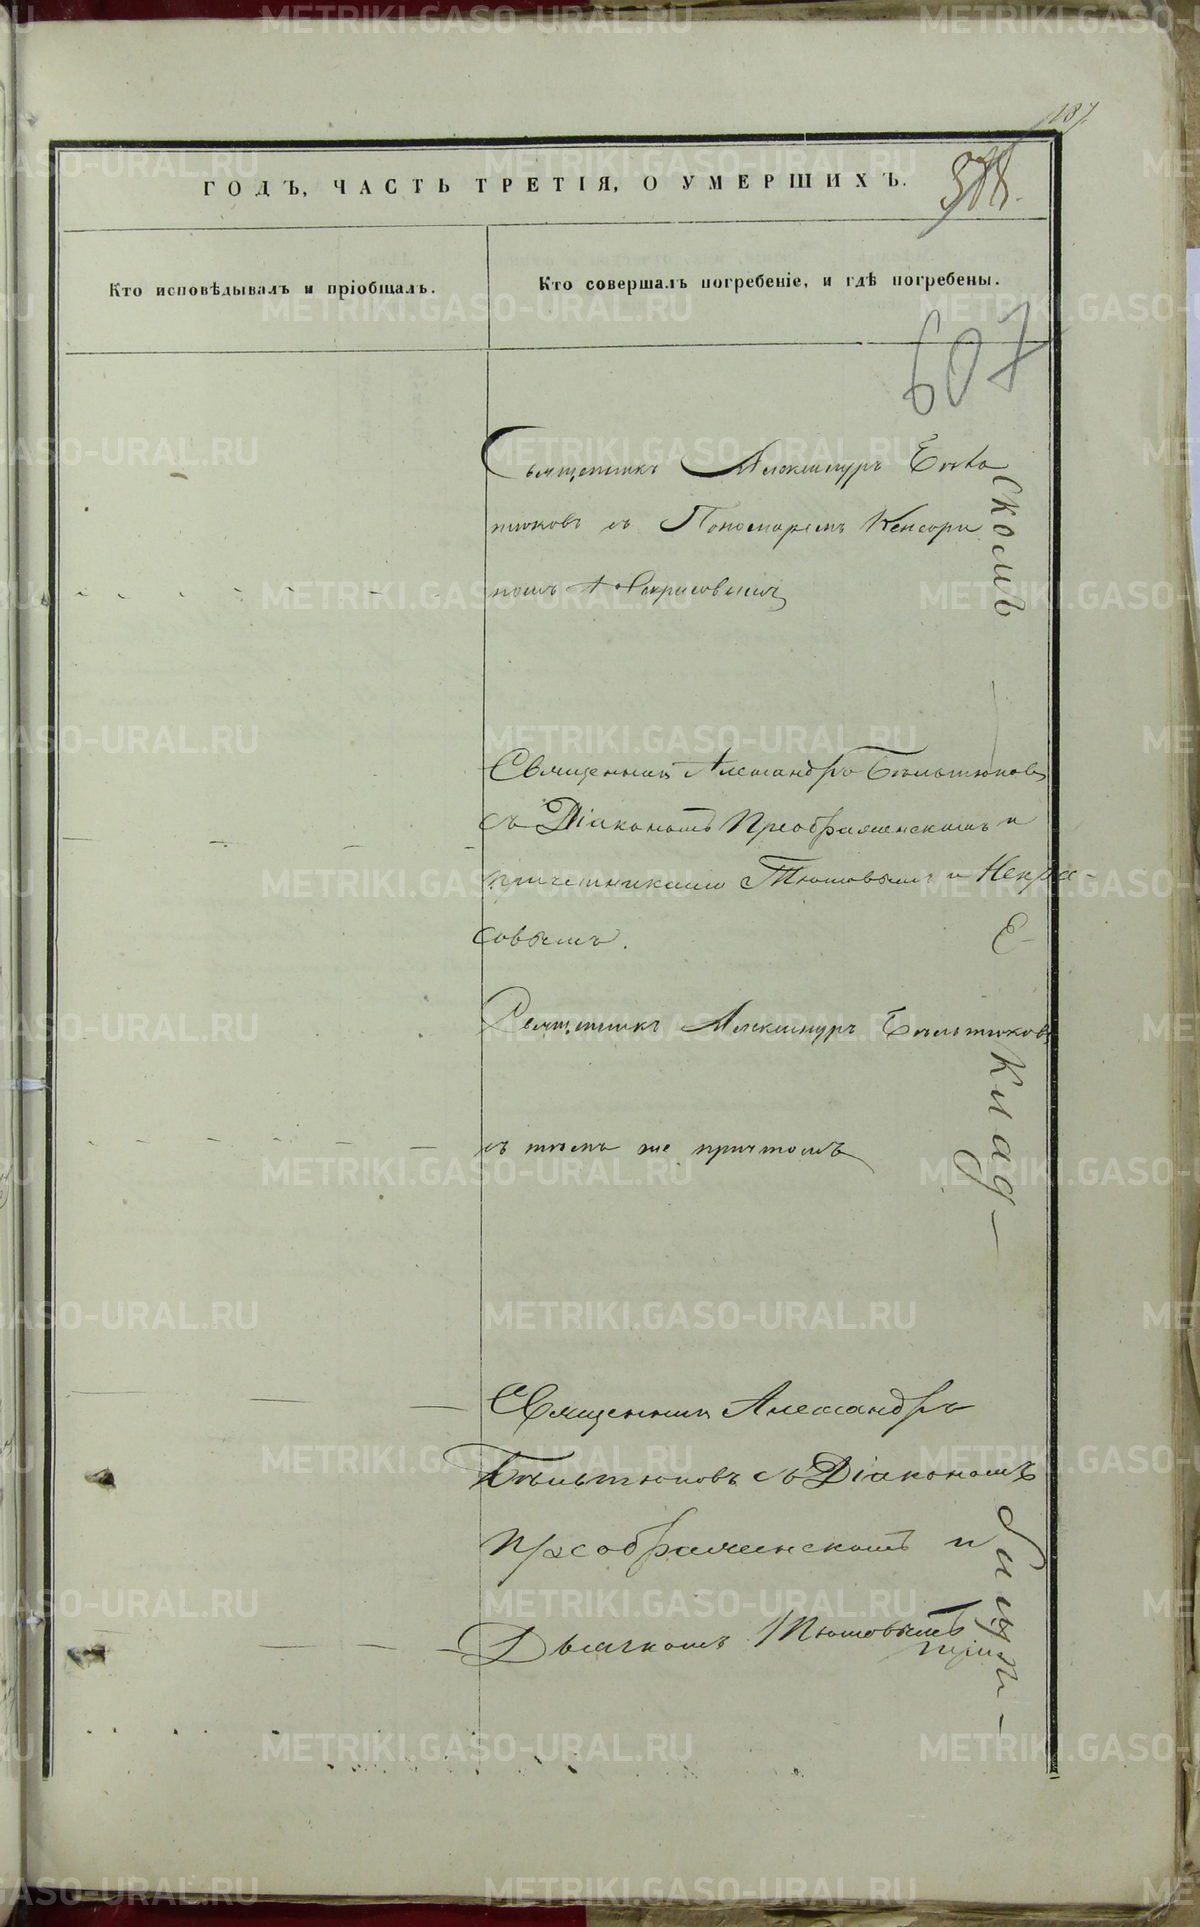 187.
ГОДЪ, ЧАСТЬ ТРЕТІЯ, О УМЕРШИХЪ.
Кто исповѣдывалъ и пріобщалъ.
Кто совершалъ погребеніе, и гдѣ погребены.
607
Священникъ Александръ
тюковъ съ Пономаремъ Кенсори
номъ Некрасовымъ
Священникъ Александръ Бѣльтюковъ
съ Діакономъ Преображенскимъ и
причетниками Тюшовымъ и Некра-
совымъ.
Священникъ Александръ Бѣльтюковъ
съ тѣмъ же причтомъ
Священникъ Александръ
Бѣльтюковъ съ Діакономъ
Преображенскимъ и
Дьячкомъ Тюшовымъ
скомъ
Клад-
METRIKI.GASO-URAL.RU